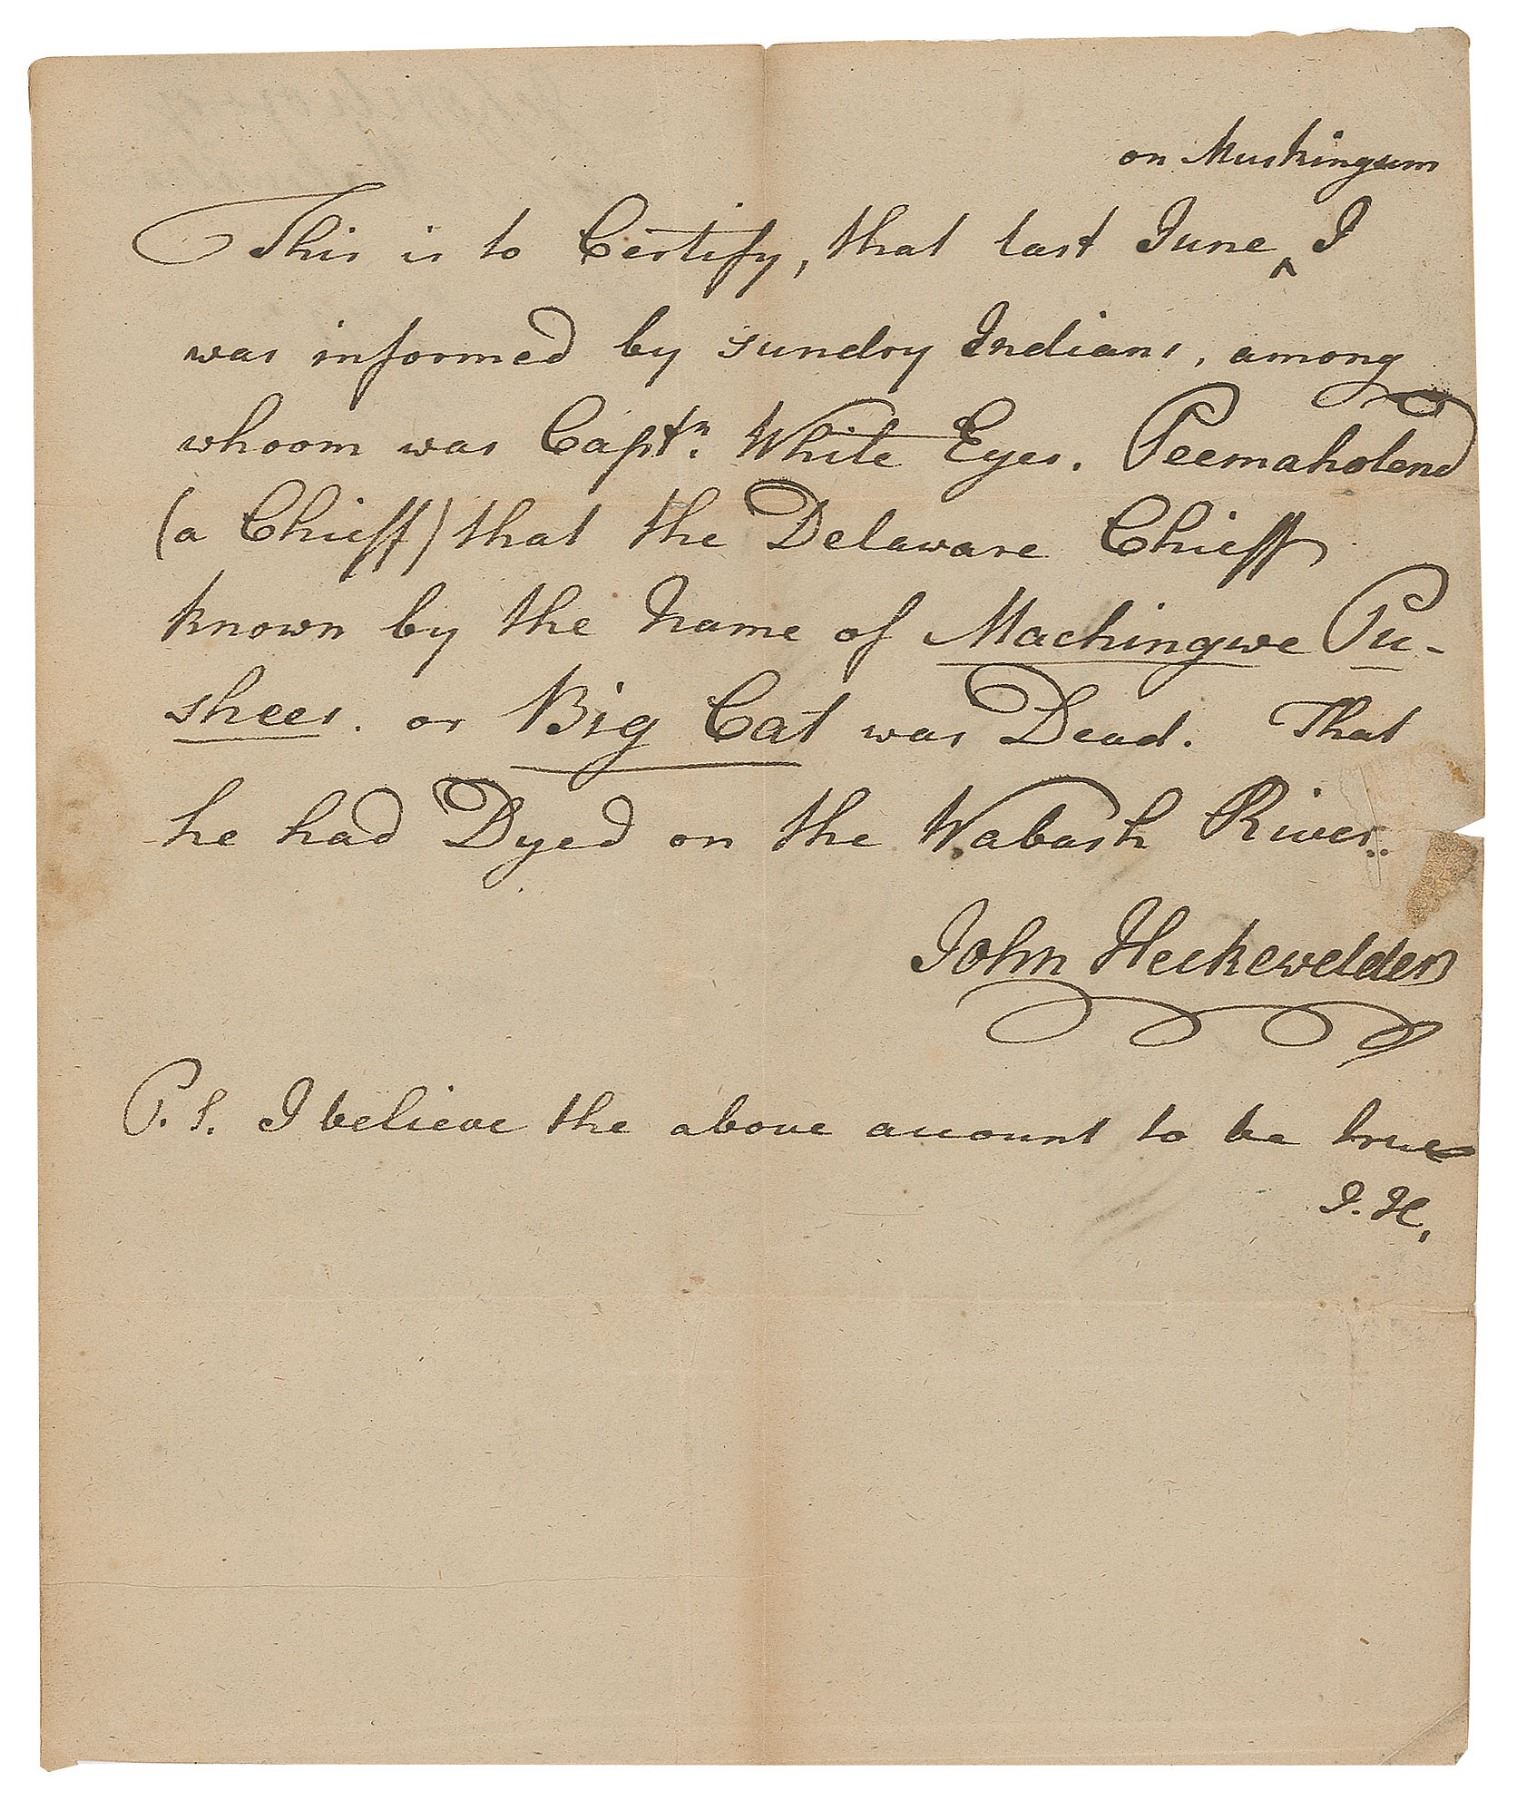 on Muskingum
This is to Certify, that last June ‸ I
was informed by sundry Indians, among
whoom was Captn. White Eyes. Peemaholend
(a Chieff) that the Delaware Chieff
known by the Name of Machingwe Pu-
shees. or Big Cat was Dead. That
he had Dyed on the Wabash River.
John Heckewelder
P.S. I believe the above account to be true
J. H.